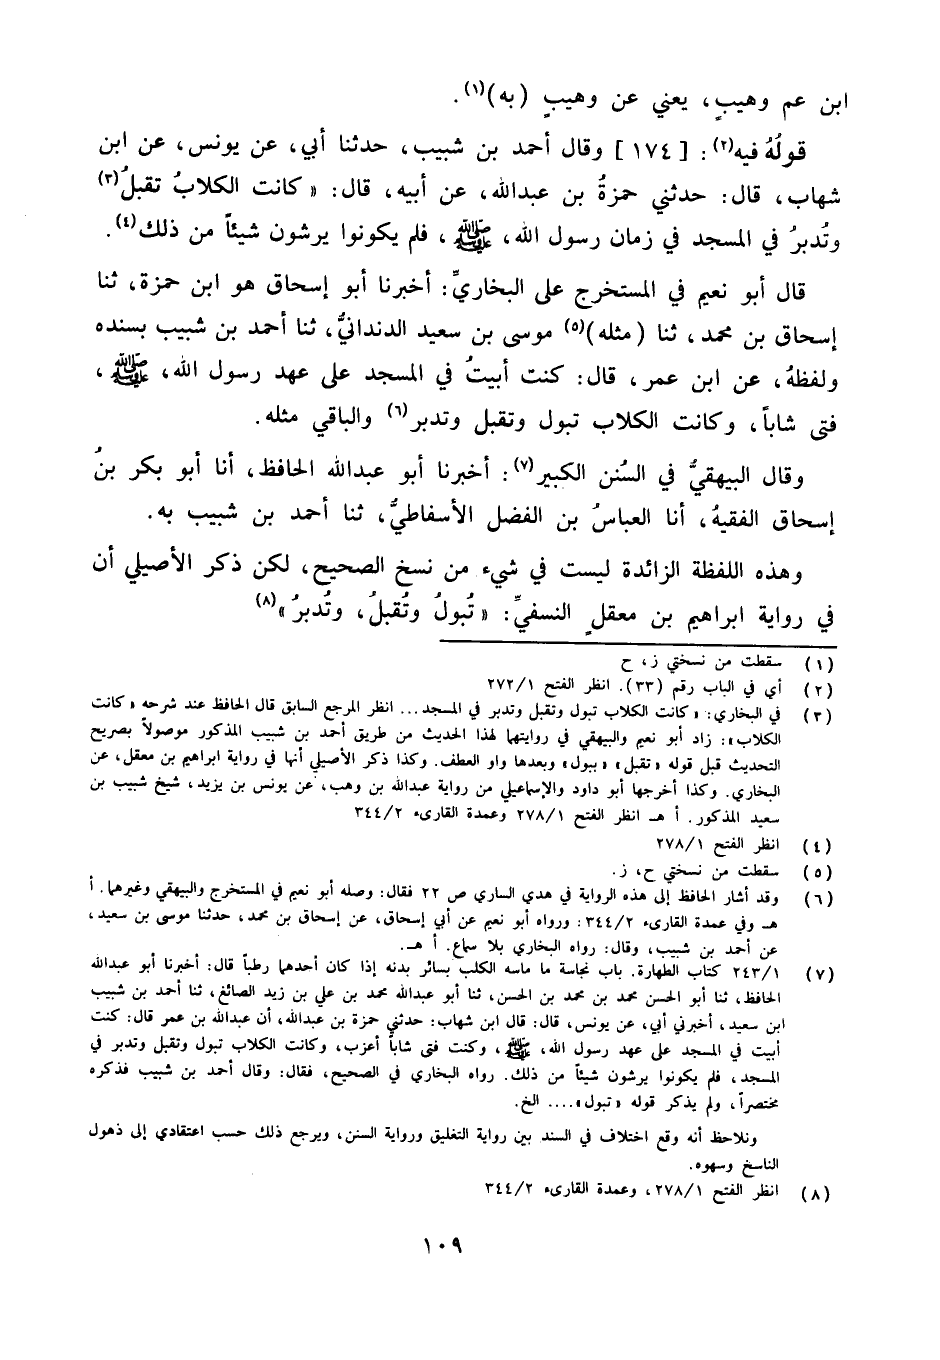 ابن عم وهيبٍ، يعني عن وهيبٍ (به)(١).
قولُهُ فيه(٢): [ ١٧٤ ] وقال أحمد بن شبيب، حدثنا أبي، عن يونس، عن ابن
شهاب، قال: حدثني حمزةُ بن عبدالله، عن أبيه، قال: « كانت الكلابُ تقبلُ(٣)
وتُدبرُ في المسجد في زمان رسول الله، ﷺ، فلم يكونوا يرشون شيئاً من ذلك(٤).
قال أبو نعيم في المستخرج على البخاريِّ: أخبرنا أبو إسحاق هو ابن حمزة، ثنا
إسحاق بن محمد، ثنا (مثله)(٥) موسى بن سعيد الدندانيُّ، ثنا أحمد بن شبيب بسنده
ولفظهُ، عن ابن عمر، قال: كنت أبيتُ في المسجد على عهد رسول الله، ﷺ،
فتى شاباً، وكانت الكلاب تبول وتقبل وتدبر(٦) والباقي مثله.
وقال البيهقيُّ في السُنن الكبير(٧): أخبرنا أبو عبدالله الحافظ، أنا أبو بكر بنُ
إسحاق الفقيهُ، أنا العباسُ بن الفضل الأسفاطيُّ، ثنا أحمد بن شبيب به.
وهذه اللفظة الزائدة ليست في شيء من نسخ الصحيح، لكن ذكر الأصيلي أن
في رواية ابراهيم بن معقلٍ النسفيِّ: « تُبولُ وتُقبلُ، وتُدبرُ »(٨)
(١) سقطت من نسختي ز، ح
(٢) أي في الباب رقم (٣٣). انظر الفتح ٢٧٢/١
(٣) في البخاري: «كانت الكلاب تبول وتقبل وتدبر في المسجد... انظر المرجع السابق قال الحافظ عند شرحه «كانت
الكلاب»: زاد أبو نعيم والبيهقي في روايتهما لهذا الحديث من طريق أحمد بن شبيب المذكور موصولاً بصريح
التحديث قبل قوله «تقبل» «ببول» وبعدها واو العطف. وكذا ذكر الأصيلي أنها في رواية ابراهيم بن معقل، عن
البخاري. وكذا أخرجها أبو داود والإسماعيلي من رواية عبدالله بن وهب، عن يونس بن يزيد، شيخ شبيب بن
سعيد المذكور. أ هـ انظر الفتح ٢٧٨/١ وعمدة القارىء ٣٤٤/٢
(٤) انظر الفتح ٢٧٨/١
(٥) سقطت من نسختي ح، ز.
(٦) وقد أشار الحافظ إلى هذه الرواية في هدي الساري ص ٢٢ فقال: وصله أبو نعيم في المستخرج والبيهقي وغيرهما. أ
هـ وفي عمدة القارىء ٣٤٤/٢: ورواه أبو نعيم عن أبي إسحاق، عن إسحاق بن محمد، حدثنا موسى بن سعيد،
عن أحمد بن شبيب، وقال: رواه البخاري بلا سماع. أ هـ.
(٧) ٢٤٣/١ كتاب الطهارة. باب نجاسة ما ماسه الكلب بسائر بدنه إذا كان أحدهما رطباً قال: أخبرنا أبو عبدالله
الحافظ، ثنا أبو الحسن محمد بن محمد بن الحسن، ثنا أبو عبدالله محمد بن علي بن زيد الصائغ، ثنا أحمد بن شبيب
ابن سعيد، أخبرني أبي، عن يونس، قال: قال ابن شهاب: حدثني حمزة بن عبدالله، أن عبدالله بن عمر قال: كنت
أبيت في المسجد على عهد رسول الله، ﷺ، وكنت فتى شاباً أعزب، وكانت الكلاب تبول وتقبل وتدبر في
المسجد، فلم يكونوا يرشون شيئاً من ذلك. رواه البخاري في الصحيح، فقال: وقال أحمد بن شبيب فذكره
مختصراً، ولم يذكر قوله «تبول».... الخ.
ونلاحظ أنه وقع اختلاف في السند بين رواية التغليق ورواية السنن، ويرجع ذلك حسب اعتقادي إلى ذهول
الناسخ وسهوه.
(٨) انظر الفتح ٢٧٨/١، وعمدة القارىء ٣٤٤/٢
١٠٩